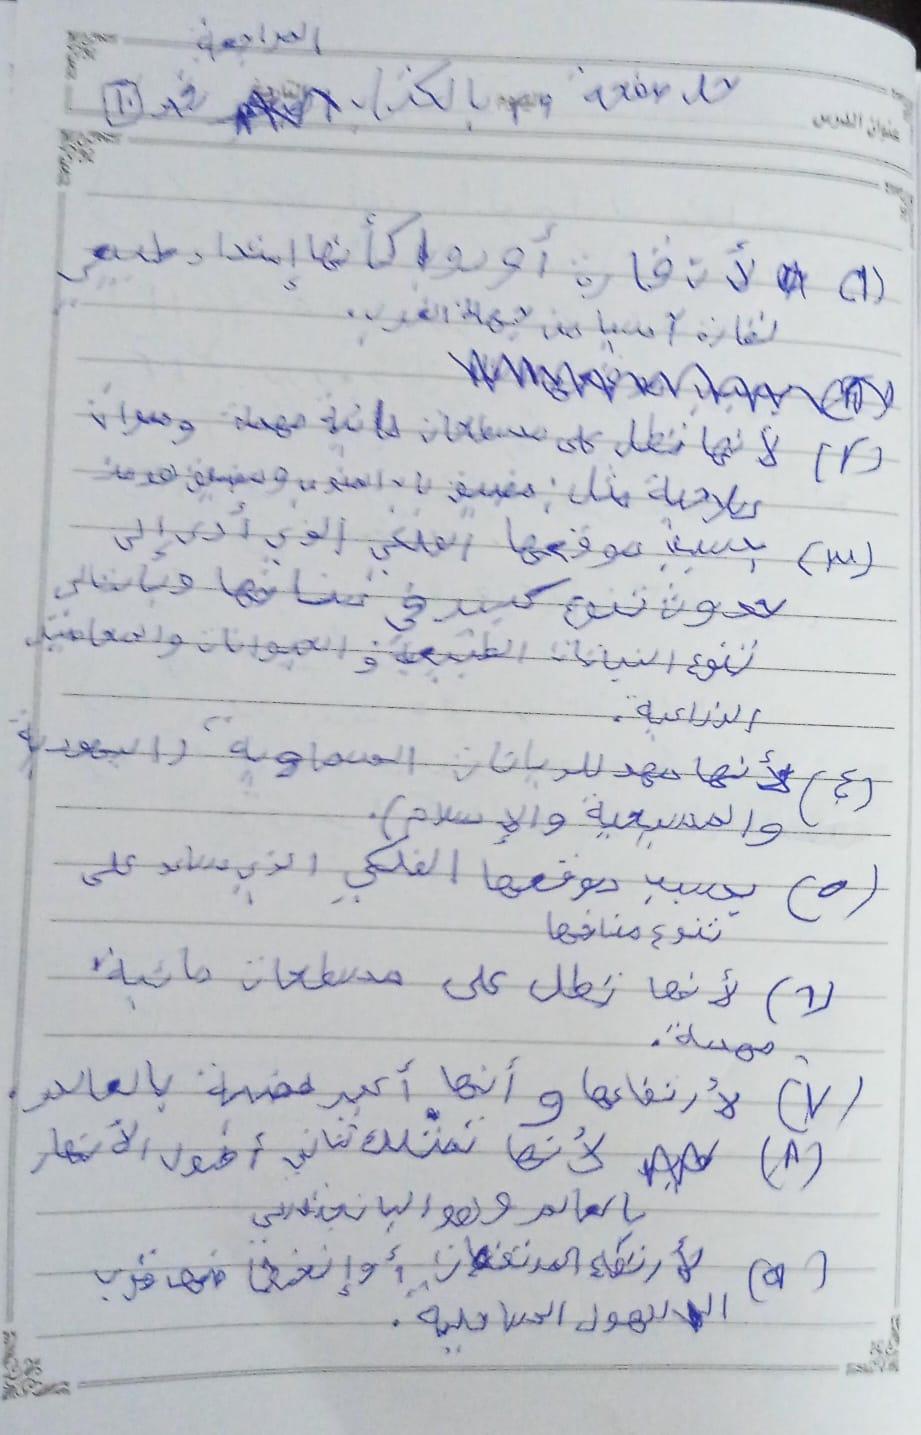 المراجعة
حل صفحة بالكتاب
١٠
عنوان الدرس
(١) لأن قارة أوروبا كأنها إمتداد طبيعي
لقارة آسيا من جهة الغرب.
(٢) لأنها تطل على مسطحات مائية مهمة وممرات
ملاحية مثل: مضيق باب المندب ومضيق هرمز
(٣) بسبب موقعها الفلكي الذي أدى إلى
حدوث تنوع كبير في مناخها وبالتالي
تنوع النباتات الطبيعية و الحيوانات والمحاصيل
الزراعية.
(٤) لأنها مهد للديانات السماوية (اليهودية
والمسيحية والإسلام).
(٥) بسبب موقعها الفلكي الذي ساعد على
تنوع مناخها
(٦) لأنها تطل على مسطحات مائية
مهمة.
(٧) لارتفاعها و أنها أكبر هضبة بالعالم.
(٨) لأنها تمتلك ثاني أطول الأنهار
بالعالم وهو اليانجتسي
(٩) لأرتفاع المرتفعات أو إنخفاضها قرب
السهول الساحلية.